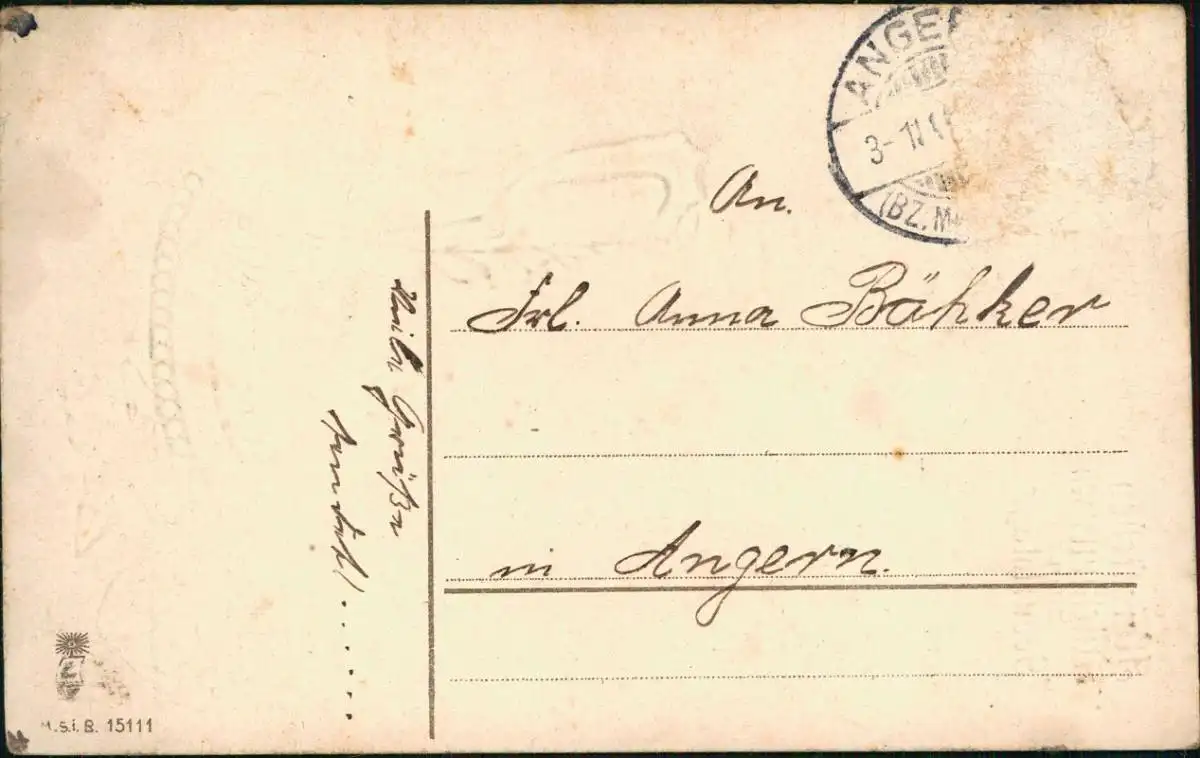 ANGE
3-11.1
(BZ. M
An.
Frl. Anna Bäthker
in Angern.
Viele Grüße
sendet!......
M.S.i.B. 15111